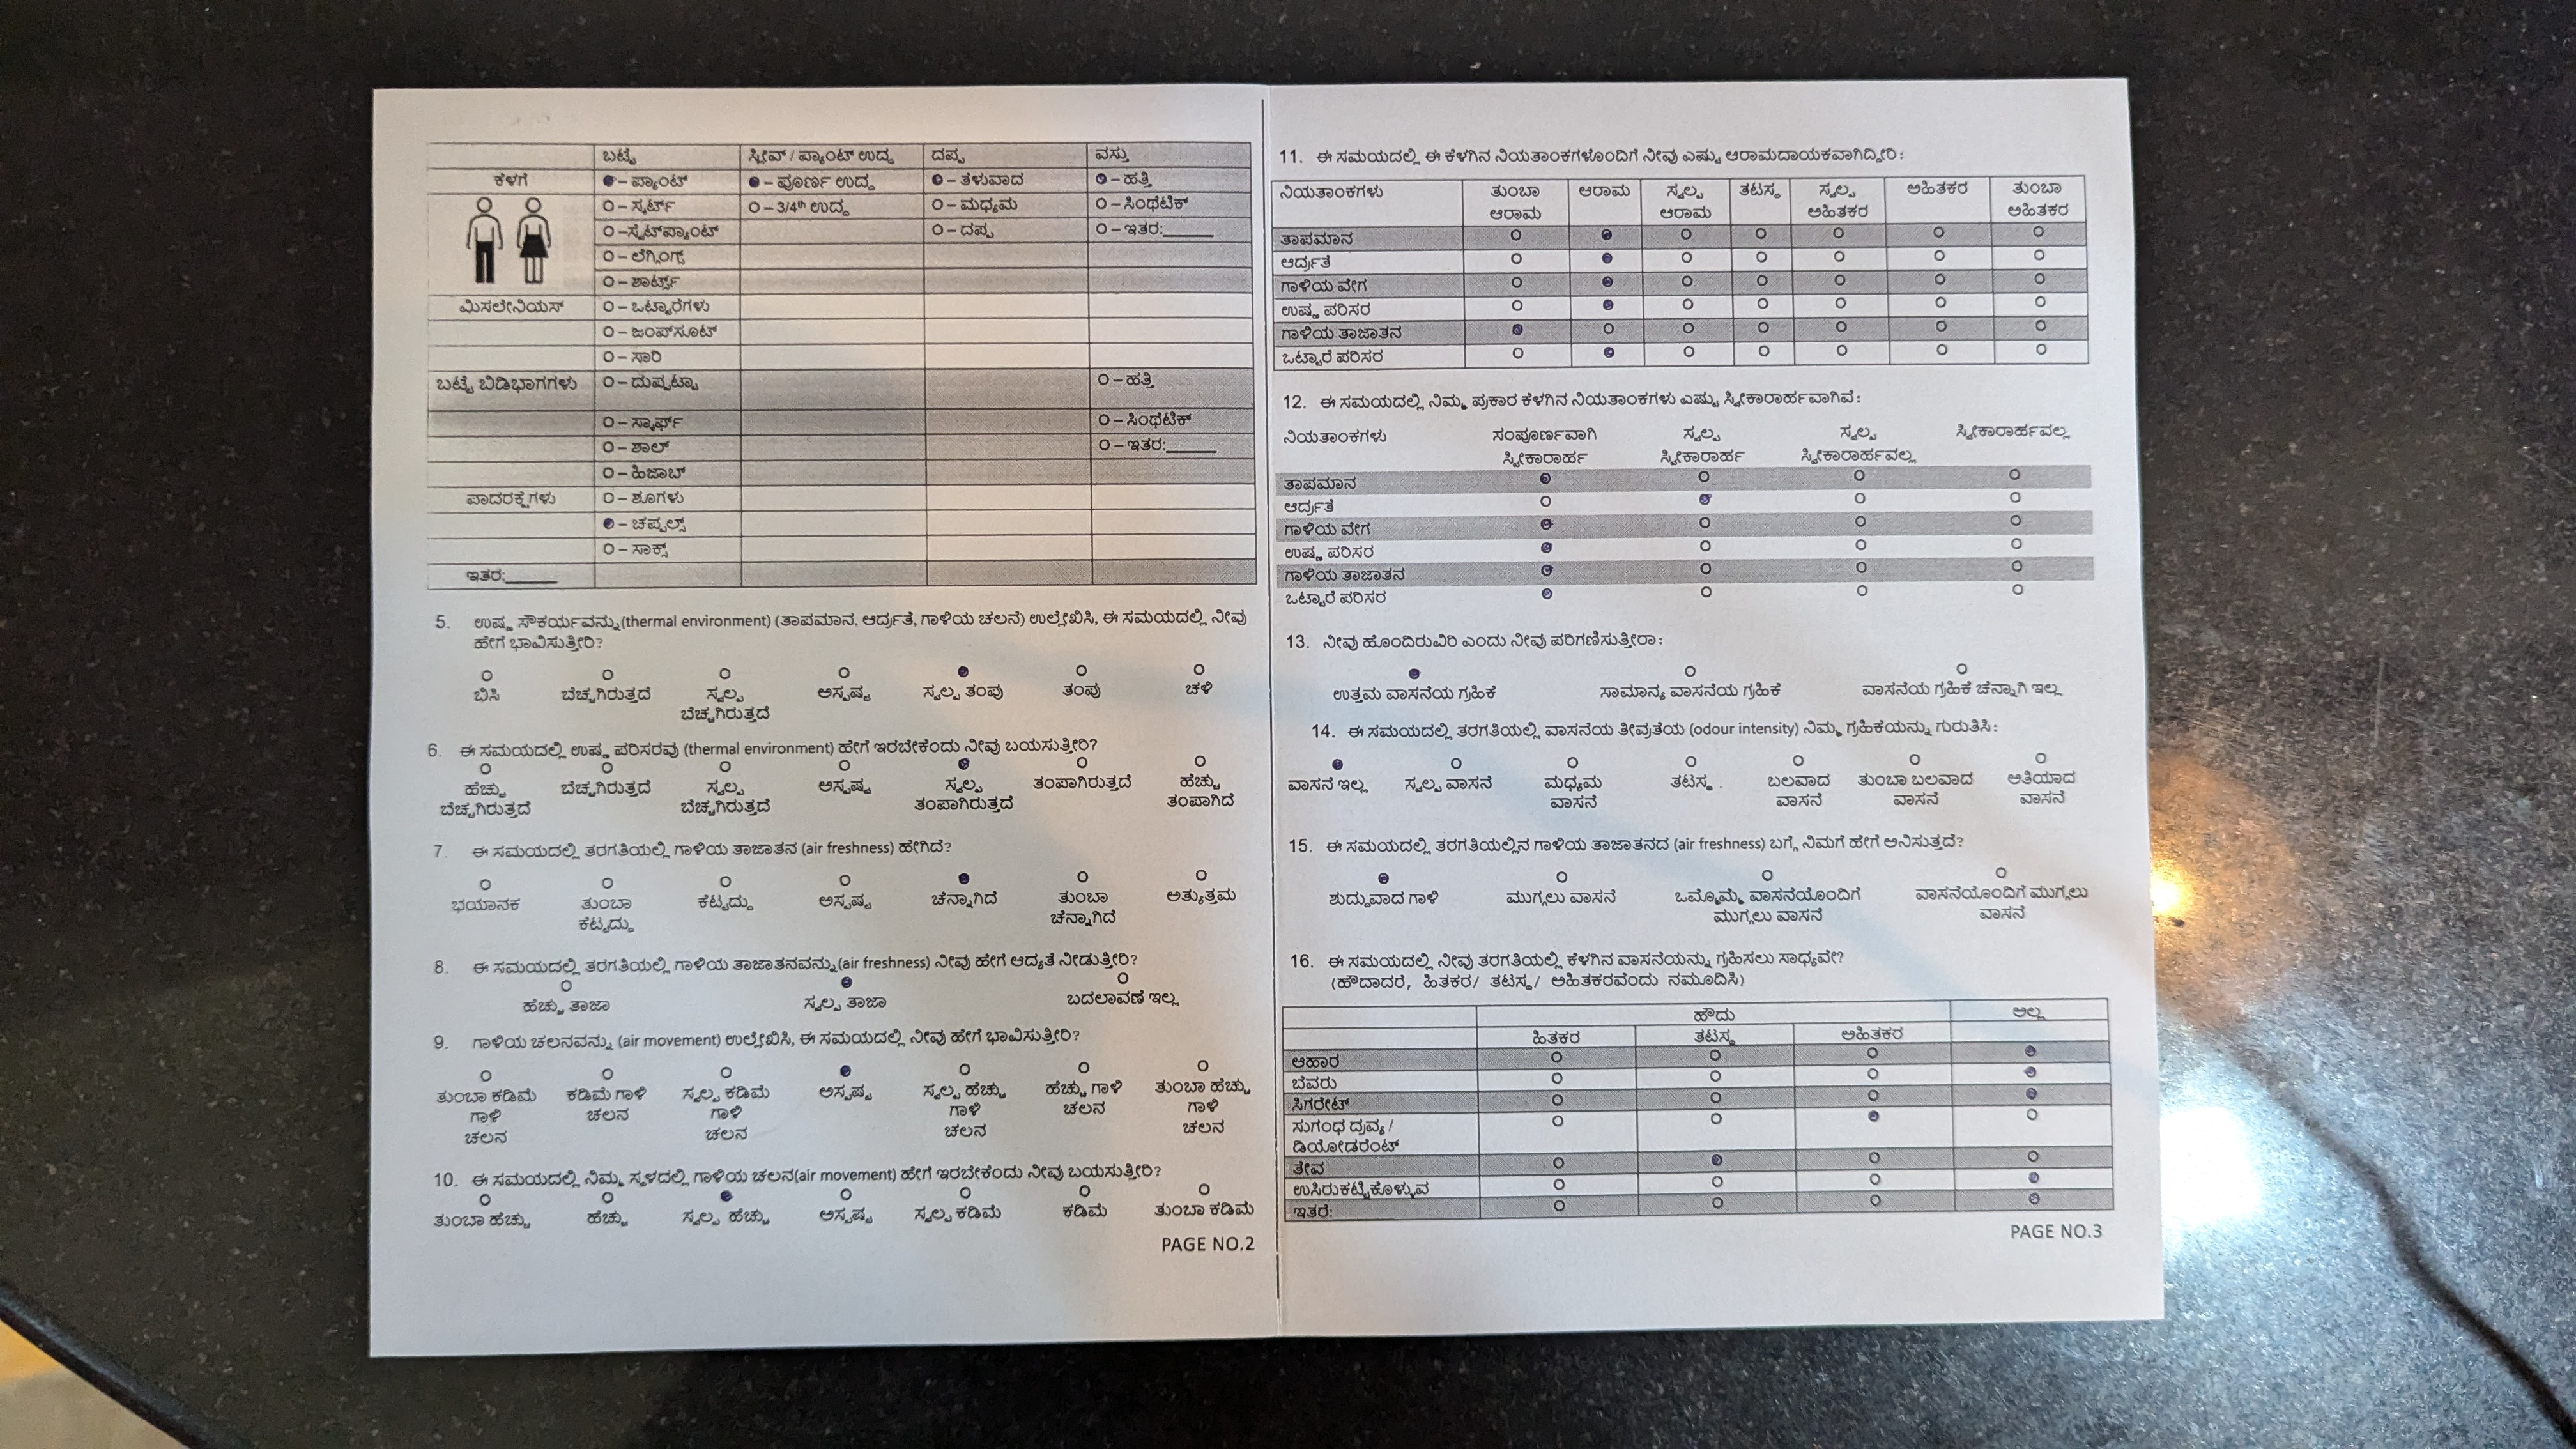 ಬಟ್ಟೆ ಸ್ಲೀವ್ / ಪ್ಯಾಂಟ್ ಉದ್ದ ದಪ್ಪ ವಸ್ತು
ಕೆಳಗೆ – ಪ್ಯಾಂಟ್ – ಪೂರ್ಣ ಉದ್ದ – ತೆಳುವಾದ – ಹತ್ತಿ
O – ಸ್ಕರ್ಟ್ O – 3/4th ಉದ್ದ O – ಮಧ್ಯಮ O – ಸಿಂಥೆಟಿಕ್
O –ಸ್ವೆಟ್‌ಪ್ಯಾಂಟ್ O – ದಪ್ಪ O – ಇತರ:______
O – ಲೆಗ್ಗಿಂಗ್ಸ್
O – ಶಾರ್ಟ್ಸ್
ಮಿಸಲೇನಿಯಸ್ O – ಒಟ್ಟಾರೆಗಳು
O – ಜಂಪ್‌ಸೂಟ್
O – ಸಾರಿ
ಬಟ್ಟೆ ಬಿಡಿಭಾಗಗಳು O – ದುಪ್ಪಟ್ಟಾ O – ಹತ್ತಿ
O – ಸ್ಕಾರ್ಫ್ O – ಸಿಂಥೆಟಿಕ್
O – ಶಾಲ್ O – ಇತರ:______
O – ಹಿಜಾಬ್
ಪಾದರಕ್ಷೆಗಳು O – ಶೂಗಳು
– ಚಪ್ಪಲ್ಸ್
O – ಸಾಕ್ಸ್
ಇತರ:______
5. ಉಷ್ಣ ಸೌಕರ್ಯವನ್ನು(thermal environment) (ತಾಪಮಾನ, ಆರ್ದ್ರತೆ, ಗಾಳಿಯ ಚಲನೆ) ಉಲ್ಲೇಖಿಸಿ, ಈ ಸಮಯದಲ್ಲಿ ನೀವು
ಹೇಗೆ ಭಾವಿಸುತ್ತೀರಿ?
ಬಿಸಿ ಬೆಚ್ಚಗಿರುತ್ತದೆ ಸ್ವಲ್ಪ ಅಸ್ಪಷ್ಟ ಸ್ವಲ್ಪ ತಂಪು ತಂಪು ಚಳಿ
ಬೆಚ್ಚಗಿರುತ್ತದೆ
6. ಈ ಸಮಯದಲ್ಲಿ ಉಷ್ಣ ಪರಿಸರವು (thermal environment) ಹೇಗೆ ಇರಬೇಕೆಂದು ನೀವು ಬಯಸುತ್ತೀರಿ?
ಹೆಚ್ಚು ಬೆಚ್ಚಗಿರುತ್ತದೆ ಸ್ವಲ್ಪ ಅಸ್ಪಷ್ಟ ಸ್ವಲ್ಪ ತಂಪಾಗಿರುತ್ತದೆ ಹೆಚ್ಚು
ಬೆಚ್ಚಗಿರುತ್ತದೆ ಬೆಚ್ಚಗಿರುತ್ತದೆ ತಂಪಾಗಿರುತ್ತದೆ ತಂಪಾಗಿದೆ
7. ಈ ಸಮಯದಲ್ಲಿ ತರಗತಿಯಲ್ಲಿ ಗಾಳಿಯ ತಾಜಾತನ (air freshness) ಹೇಗಿದೆ?
ಭಯಾನಕ ತುಂಬಾ ಕೆಟ್ಟದ್ದು ಅಸ್ಪಷ್ಟ ಚೆನ್ನಾಗಿದೆ ತುಂಬಾ ಅತ್ಯುತ್ತಮ
ಕೆಟ್ಟದ್ದು ಚೆನ್ನಾಗಿದೆ
8. ಈ ಸಮಯದಲ್ಲಿ ತರಗತಿಯಲ್ಲಿ ಗಾಳಿಯ ತಾಜಾತನವನ್ನು(air freshness) ನೀವು ಹೇಗೆ ಆದ್ಯತೆ ನೀಡುತ್ತೀರಿ?
ಹೆಚ್ಚು ತಾಜಾ ಸ್ವಲ್ಪ ತಾಜಾ ಬದಲಾವಣೆ ಇಲ್ಲ
9. ಗಾಳಿಯ ಚಲನವನ್ನು (air movement) ಉಲ್ಲೇಖಿಸಿ, ಈ ಸಮಯದಲ್ಲಿ ನೀವು ಹೇಗೆ ಭಾವಿಸುತ್ತೀರಿ?
ತುಂಬಾ ಕಡಿಮೆ ಕಡಿಮೆ ಗಾಳಿ ಸ್ವಲ್ಪ ಕಡಿಮೆ ಅಸ್ಪಷ್ಟ ಸ್ವಲ್ಪ ಹೆಚ್ಚು ಹೆಚ್ಚು ಗಾಳಿ ತುಂಬಾ ಹೆಚ್ಚು
ಗಾಳಿ ಚಲನ ಗಾಳಿ ಗಾಳಿ ಚಲನ ಗಾಳಿ
ಚಲನ ಚಲನ ಚಲನ ಚಲನ
10. ಈ ಸಮಯದಲ್ಲಿ ನಿಮ್ಮ ಸ್ಥಳದಲ್ಲಿ ಗಾಳಿಯ ಚಲನ(air movement) ಹೇಗೆ ಇರಬೇಕೆಂದು ನೀವು ಬಯಸುತ್ತೀರಿ?
ತುಂಬಾ ಹೆಚ್ಚು ಹೆಚ್ಚು ಸ್ವಲ್ಪ ಹೆಚ್ಚು ಅಸ್ಪಷ್ಟ ಸ್ವಲ್ಪ ಕಡಿಮೆ ಕಡಿಮೆ ತುಂಬಾ ಕಡಿಮೆ
PAGE NO.2
11. ಈ ಸಮಯದಲ್ಲಿ ಈ ಕೆಳಗಿನ ನಿಯತಾಂಕಗಳೊಂದಿಗೆ ನೀವು ಎಷ್ಟು ಆರಾಮದಾಯಕವಾಗಿದ್ದೀರಿ:
ನಿಯತಾಂಕಗಳು ತುಂಬಾ ಆರಾಮ ಸ್ವಲ್ಪ ತಟಸ್ಥ ಸ್ವಲ್ಪ ಅಹಿತಕರ ತುಂಬಾ
ಆರಾಮ ಆರಾಮ ಅಹಿತಕರ ಅಹಿತಕರ
ತಾಪಮಾನ
ಆರ್ದ್ರತೆ
ಗಾಳಿಯ ವೇಗ
ಉಷ್ಣ ಪರಿಸರ
ಗಾಳಿಯ ತಾಜಾತನ
ಒಟ್ಟಾರೆ ಪರಿಸರ
12. ಈ ಸಮಯದಲ್ಲಿ ನಿಮ್ಮ ಪ್ರಕಾರ ಕೆಳಗಿನ ನಿಯತಾಂಕಗಳು ಎಷ್ಟು ಸ್ವೀಕಾರಾರ್ಹವಾಗಿವೆ:
ನಿಯತಾಂಕಗಳು ಸಂಪೂರ್ಣವಾಗಿ ಸ್ವಲ್ಪ ಸ್ವಲ್ಪ ಸ್ವೀಕಾರಾರ್ಹವಲ್ಲ
ಸ್ವೀಕಾರಾರ್ಹ ಸ್ವೀಕಾರಾರ್ಹ ಸ್ವೀಕಾರಾರ್ಹವಲ್ಲ
ತಾಪಮಾನ
ಆರ್ದ್ರತೆ
ಗಾಳಿಯ ವೇಗ
ಉಷ್ಣ ಪರಿಸರ
ಗಾಳಿಯ ತಾಜಾತನ
ಒಟ್ಟಾರೆ ಪರಿಸರ
13. ನೀವು ಹೊಂದಿರುವಿರಿ ಎಂದು ನೀವು ಪರಿಗಣಿಸುತ್ತೀರಾ:
ಉತ್ತಮ ವಾಸನೆಯ ಗ್ರಹಿಕೆ ಸಾಮಾನ್ಯ ವಾಸನೆಯ ಗ್ರಹಿಕೆ ವಾಸನೆಯ ಗ್ರಹಿಕೆ ಚೆನ್ನಾಗಿ ಇಲ್ಲ
14. ಈ ಸಮಯದಲ್ಲಿ ತರಗತಿಯಲ್ಲಿ ವಾಸನೆಯ ತೀವ್ರತೆಯ (odour intensity) ನಿಮ್ಮ ಗ್ರಹಿಕೆಯನ್ನು ಗುರುತಿಸಿ:
ವಾಸನೆ ಇಲ್ಲ ಸ್ವಲ್ಪ ವಾಸನೆ ಮಧ್ಯಮ ತಟಸ್ಥ . ಬಲವಾದ ತುಂಬಾ ಬಲವಾದ ಅತಿಯಾದ
ವಾಸನೆ ವಾಸನೆ ವಾಸನೆ ವಾಸನೆ
15. ಈ ಸಮಯದಲ್ಲಿ ತರಗತಿಯಲ್ಲಿನ ಗಾಳಿಯ ತಾಜಾತನದ (air freshness) ಬಗ್ಗೆ ನಿಮಗೆ ಹೇಗೆ ಅನಿಸುತ್ತದೆ?
ಶುದ್ಧವಾದ ಗಾಳಿ ಮುಗ್ಗಲು ವಾಸನೆ ಒಮ್ಮೊಮ್ಮೆ ವಾಸನೆಯೊಂದಿಗೆ ವಾಸನೆಯೊಂದಿಗೆ ಮುಗ್ಗಲು
ಮುಗ್ಗಲು ವಾಸನೆ ವಾಸನೆ
16. ಈ ಸಮಯದಲ್ಲಿ ನೀವು ತರಗತಿಯಲ್ಲಿ ಕೆಳಗಿನ ವಾಸನೆಯನ್ನು ಗ್ರಹಿಸಲು ಸಾಧ್ಯವೇ?
(ಹೌದಾದರೆ, ಹಿತಕರ/ ತಟಸ್ಥ/ ಅಹಿತಕರವೆಂದು ನಮೂದಿಸಿ)
ಹೌದು ಅಲ್ಲ
ಹಿತಕರ ತಟಸ್ಥ ಅಹಿತಕರ
ಆಹಾರ
ಬೆವರು
ಸಿಗರೇಟ್
ಸುಗಂಧ ದ್ರವ್ಯ/
ಡಿಯೋಡರೆಂಟ್
ತೇವ
ಉಸಿರುಕಟ್ಟಿಕೊಳ್ಳುವ
ಇತರೆ:
PAGE NO.3